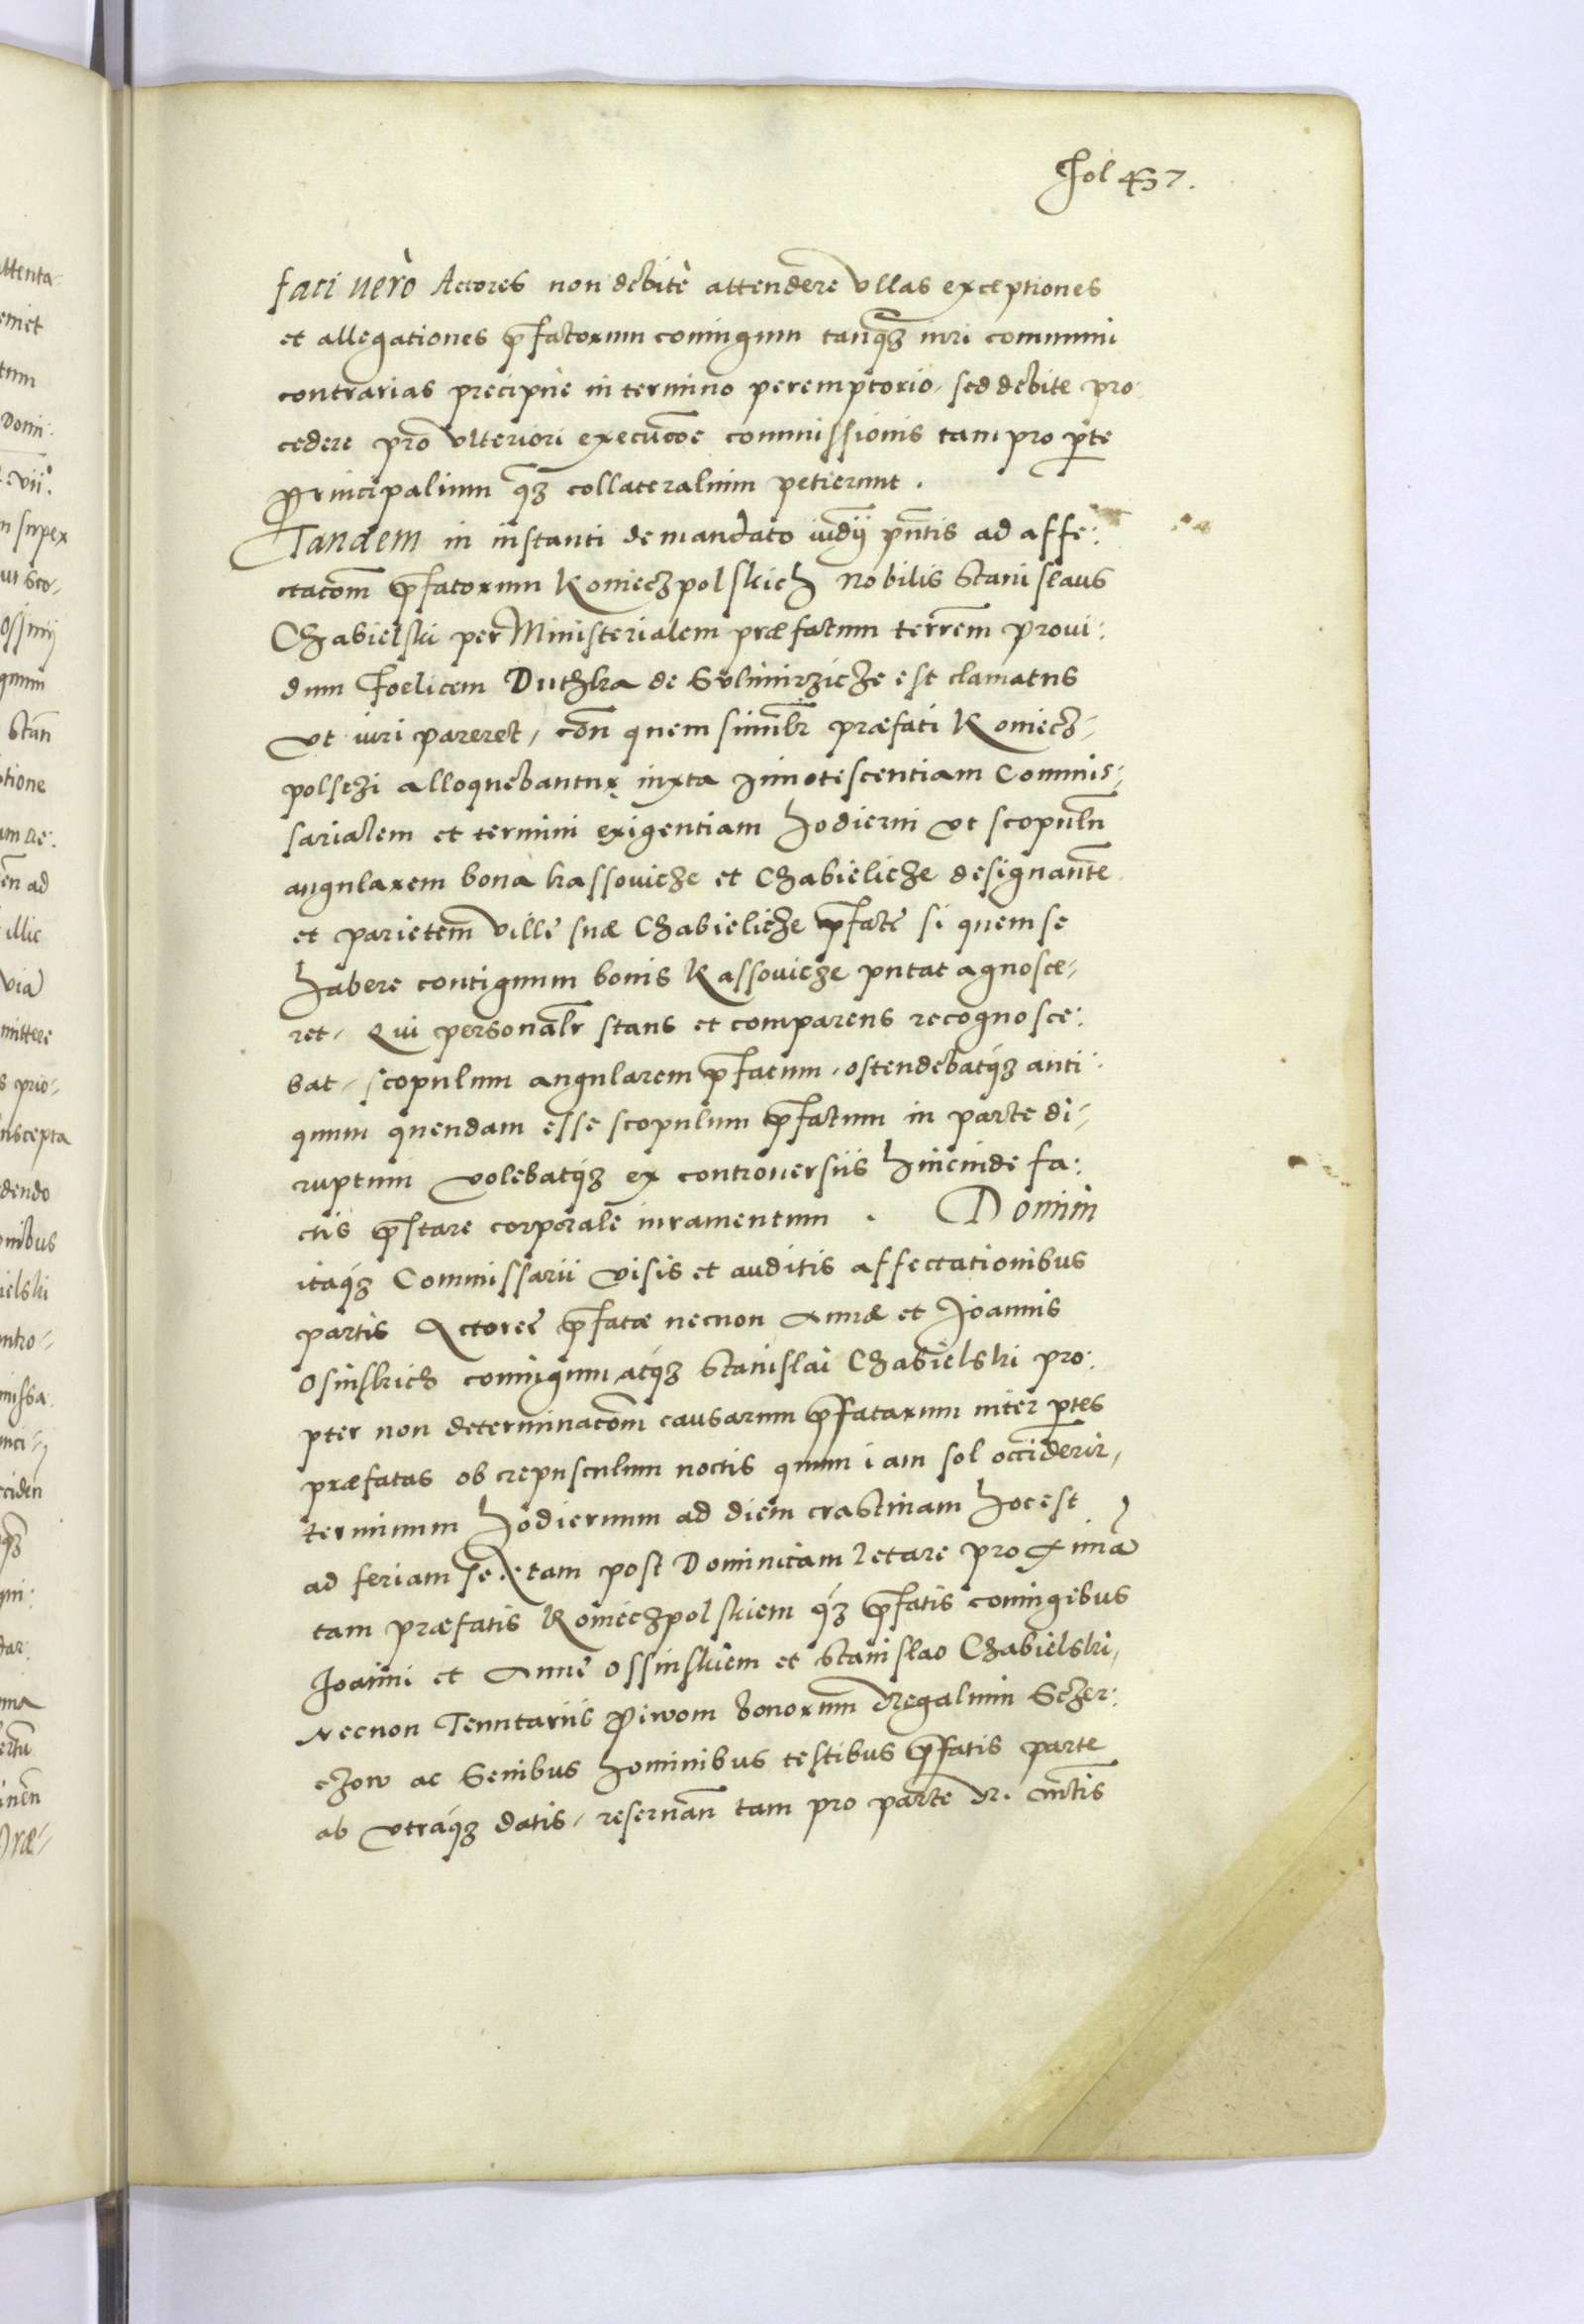 Fol 437.
fati uerò Actores non debitè attendere vllas exceptiones
et allegationes p̃fatorum coniugum tanq̃ȝ iuri communi
contrarias precipue in termino peremptorio, sed debite pro:
cedere pro vlteriori execucõe commissionis tam pro p̱te
Principalium q̃ȝ collateralium petierunt.
Tandem in instanti de mandato iudȳ pñtis ad affe:
ctacom̃ p̃fatorum Konieczpolskich Nobilis Stanislaus
Chabielski per Ministerialem præfatum terrem̃ proui:
dum Foelicem Duthka de Sulmirzicze est clamatus
vt iuri pareret, con̄ quem simil̃r præfati Koniecz-
polsczi alloquebantur iuxta Innotescentiam Commis:
sarialem et termini exigentiam hodierni vt scopulũ
angularem bona kassouicze et Chabielicze designan̄te
et parietem ville suæ Chabielicze p̃fatę si quem se
habere contiguum bonis Kassouicze putat agnosce-
ret, Qui personal̃r stans et comparens recognosce:
bat, scopulum angularem p̃fatum, ostendebatq́ȝ anti:
quum quendam esse scopulum p̃fatum in parte di-
ruptum volebatq́ȝ ex controuersiis hincinde fa:
ctis p̃stare corporale iuramentum . Domini
itaq́ȝ Commissarii visis et auditis affectationibus
partis Actoreę p̃fatæ necnon Annæ et Joannis
Osinskich coniugum atq́ȝ Stanislai Chabielski pro:
pter non determinacom̃ causarum p̃fatarum inter p̱tes
præfatas ob crepusculum noctis quum iam sol occiderit,
terminum hodiernum ad diem crastinam hoc est
ad feriam sextam post Dominicam Letare proximã
tam præfatis Koniechpolskiem q́ȝ p̃fatis coniugibus
Joanni et Annę Ossinskiem et Stanislao Chabielski,
Necnon Tenutariis Piwom bonorum Regalium Sczer:
czow ac Senibus hominibus testibus p̃fatis parte
ab vtraq́ȝ datis, reseruan̄ tam pro parte R. Mtis